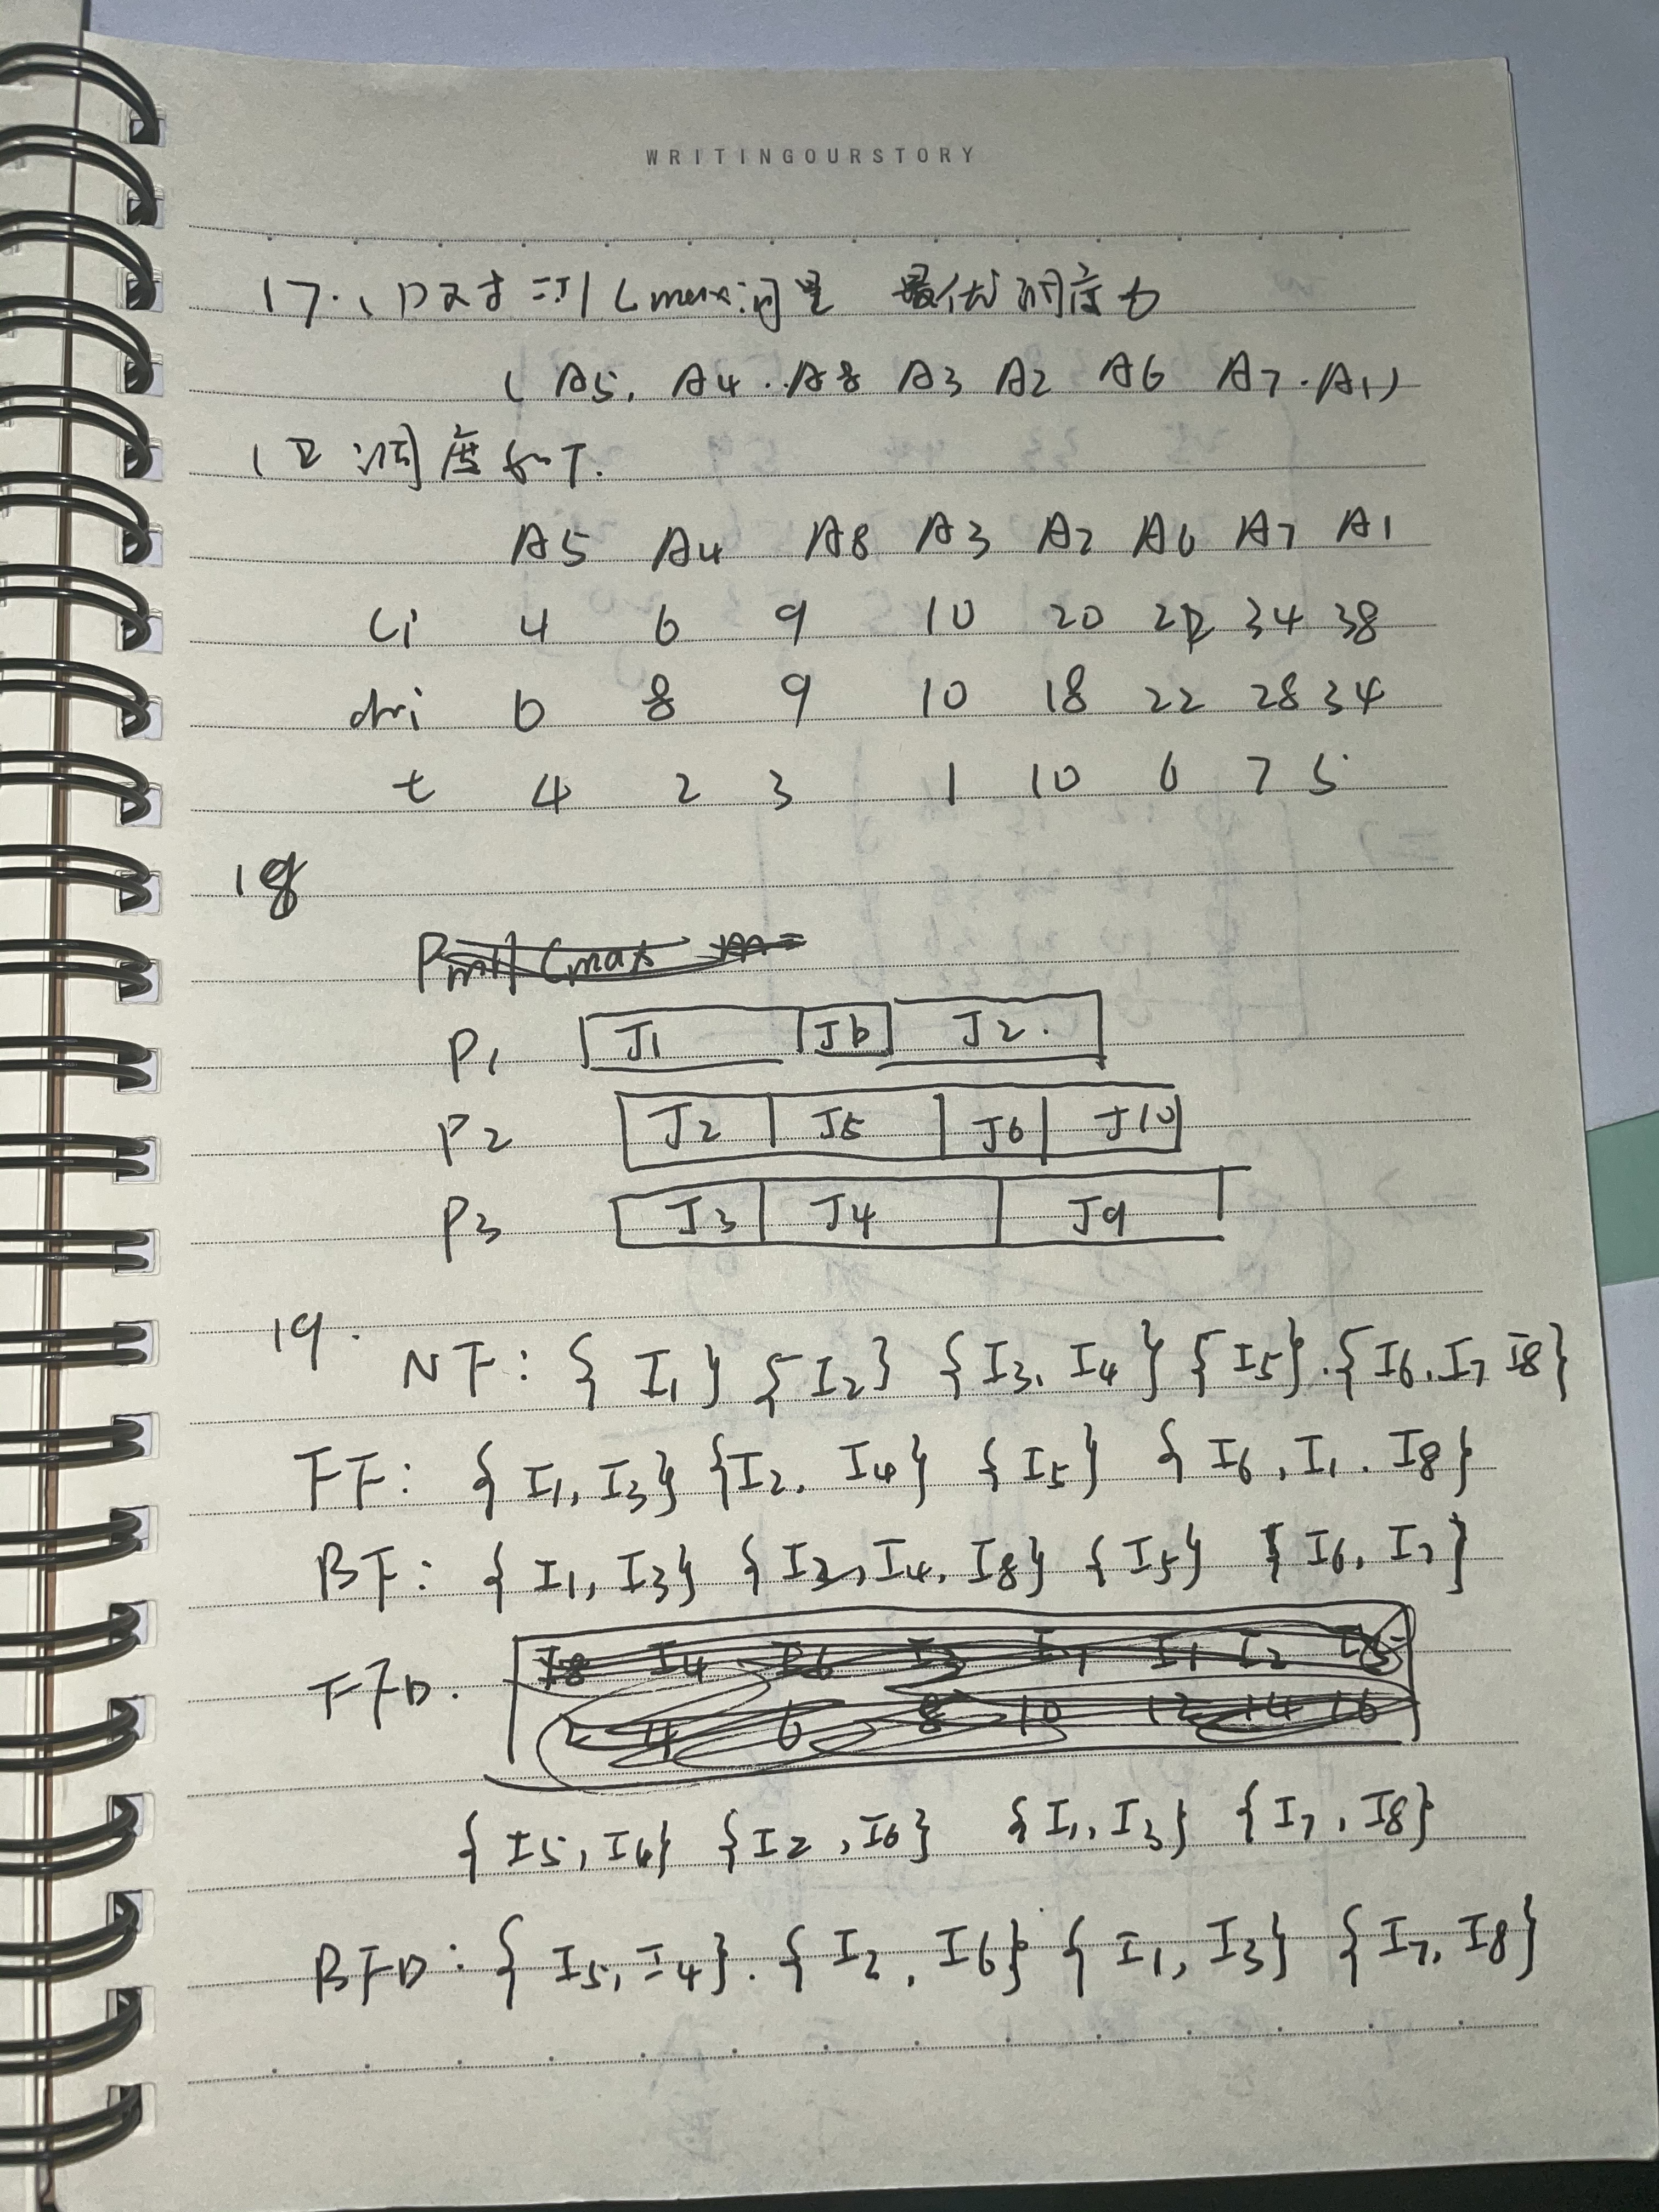 WRITINGOURSTORY
17. (1) 对于 1 | Cmax问题 最优调度为
(A5, A4, A8 A3 A2 A6 A7, A1)
(2 调度如下.
A5 A4 A8 A3 A2 A6 A7 A1
Ci 4 6 9 10 20 22 34 38
di 6 8 9 10 18 22 28 34
t 4 2 3 1 10 6 7 5
18
P1 J1 J6 J2.
P2 J2 J5 J6 J10
P3 J3 J4 J9
19. NF: { I1 } { I2 } { I3, I4 } { I5 }. { I6, I7 I8 }
FF: { I1, I3 } { I2, I4 } { I5 } { I6, I1, I8 }
BF: { I1, I3 } { I2, I4, I8 } { I5 } { I6, I7 }
FFD.
{ I5, I4 } { I2, I6 } { I1, I3 } { I7, I8 }
BFD: { I5, I4 }. { I2, I6 } { I1, I3 } { I7, I8 }